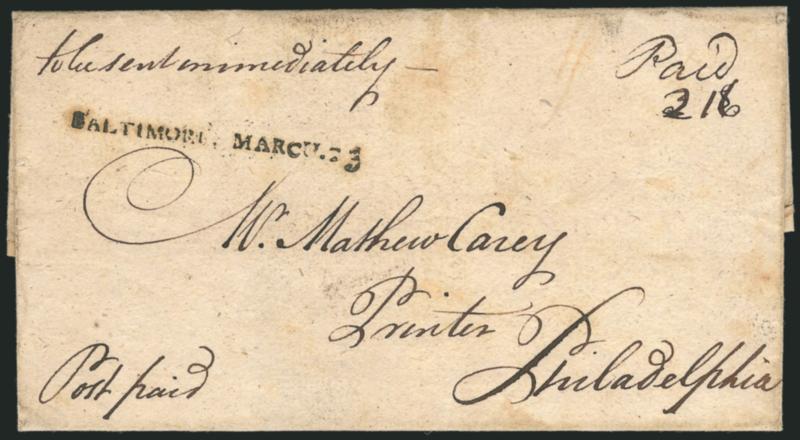 to be sent immediately —
Paid
2 16
BALTIMORE, MARCH. 23
Mr. Mathew Carey
Printer
Philadelphia
Post paid